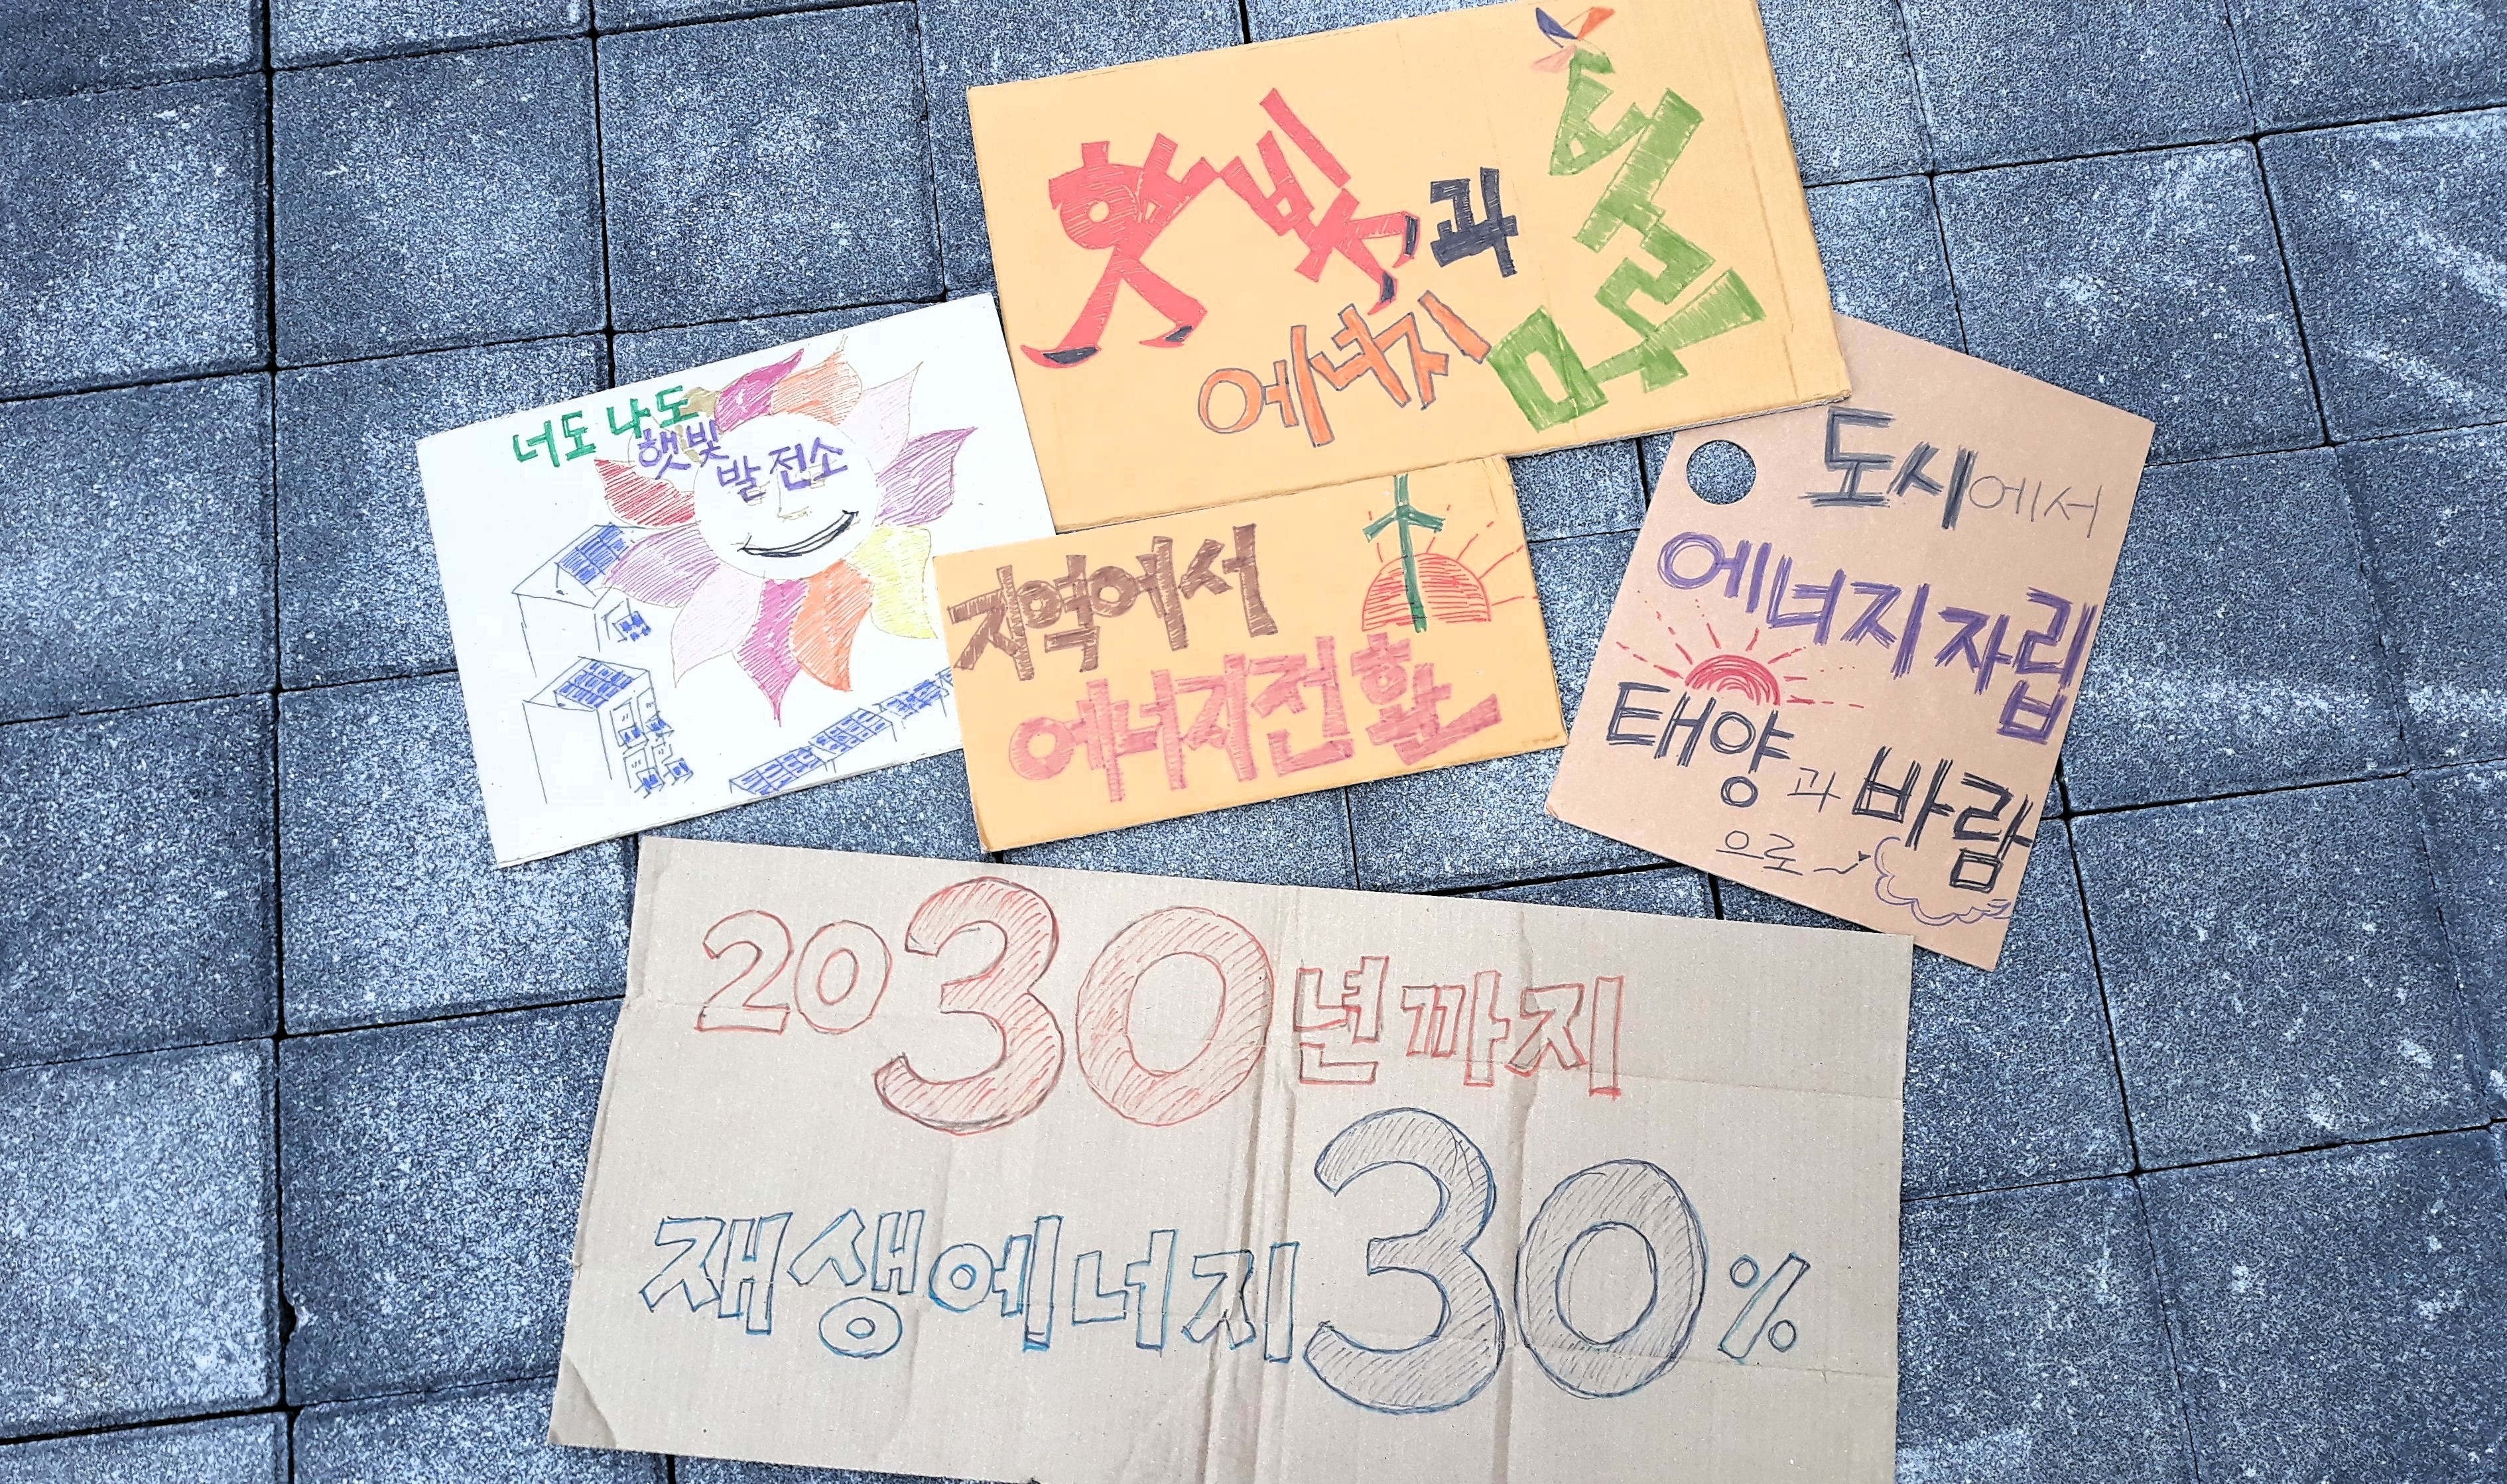 햇빛과 바람
에너지
너도 나도
햇빛
발전소
지역에서
에너지전환
도시에서
에너지자립
태양과 바람
으로~
2030년까지
재생에너지 30%